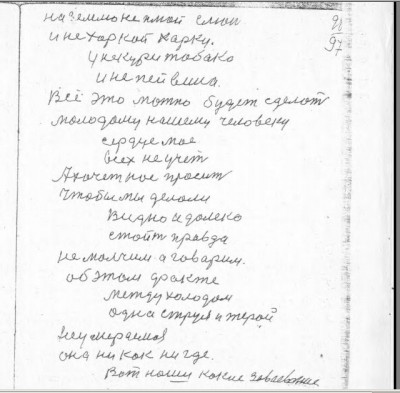 на землю не плюй слюй
и не харкой харку.
у не кури тобако
и не пей вина.
Всё это можно будет сделот
молодому нашему человеку
сердце мое
всех не учет
А хочет нос просит
Чтобы мы делоли
Видно и долеко
стоит правда
не молчим а говарим.
об этом факте
между холодом
одна струя и жерой
неумераемоя
она ни как ни где.
Вот нашы какие завоевание
91
97